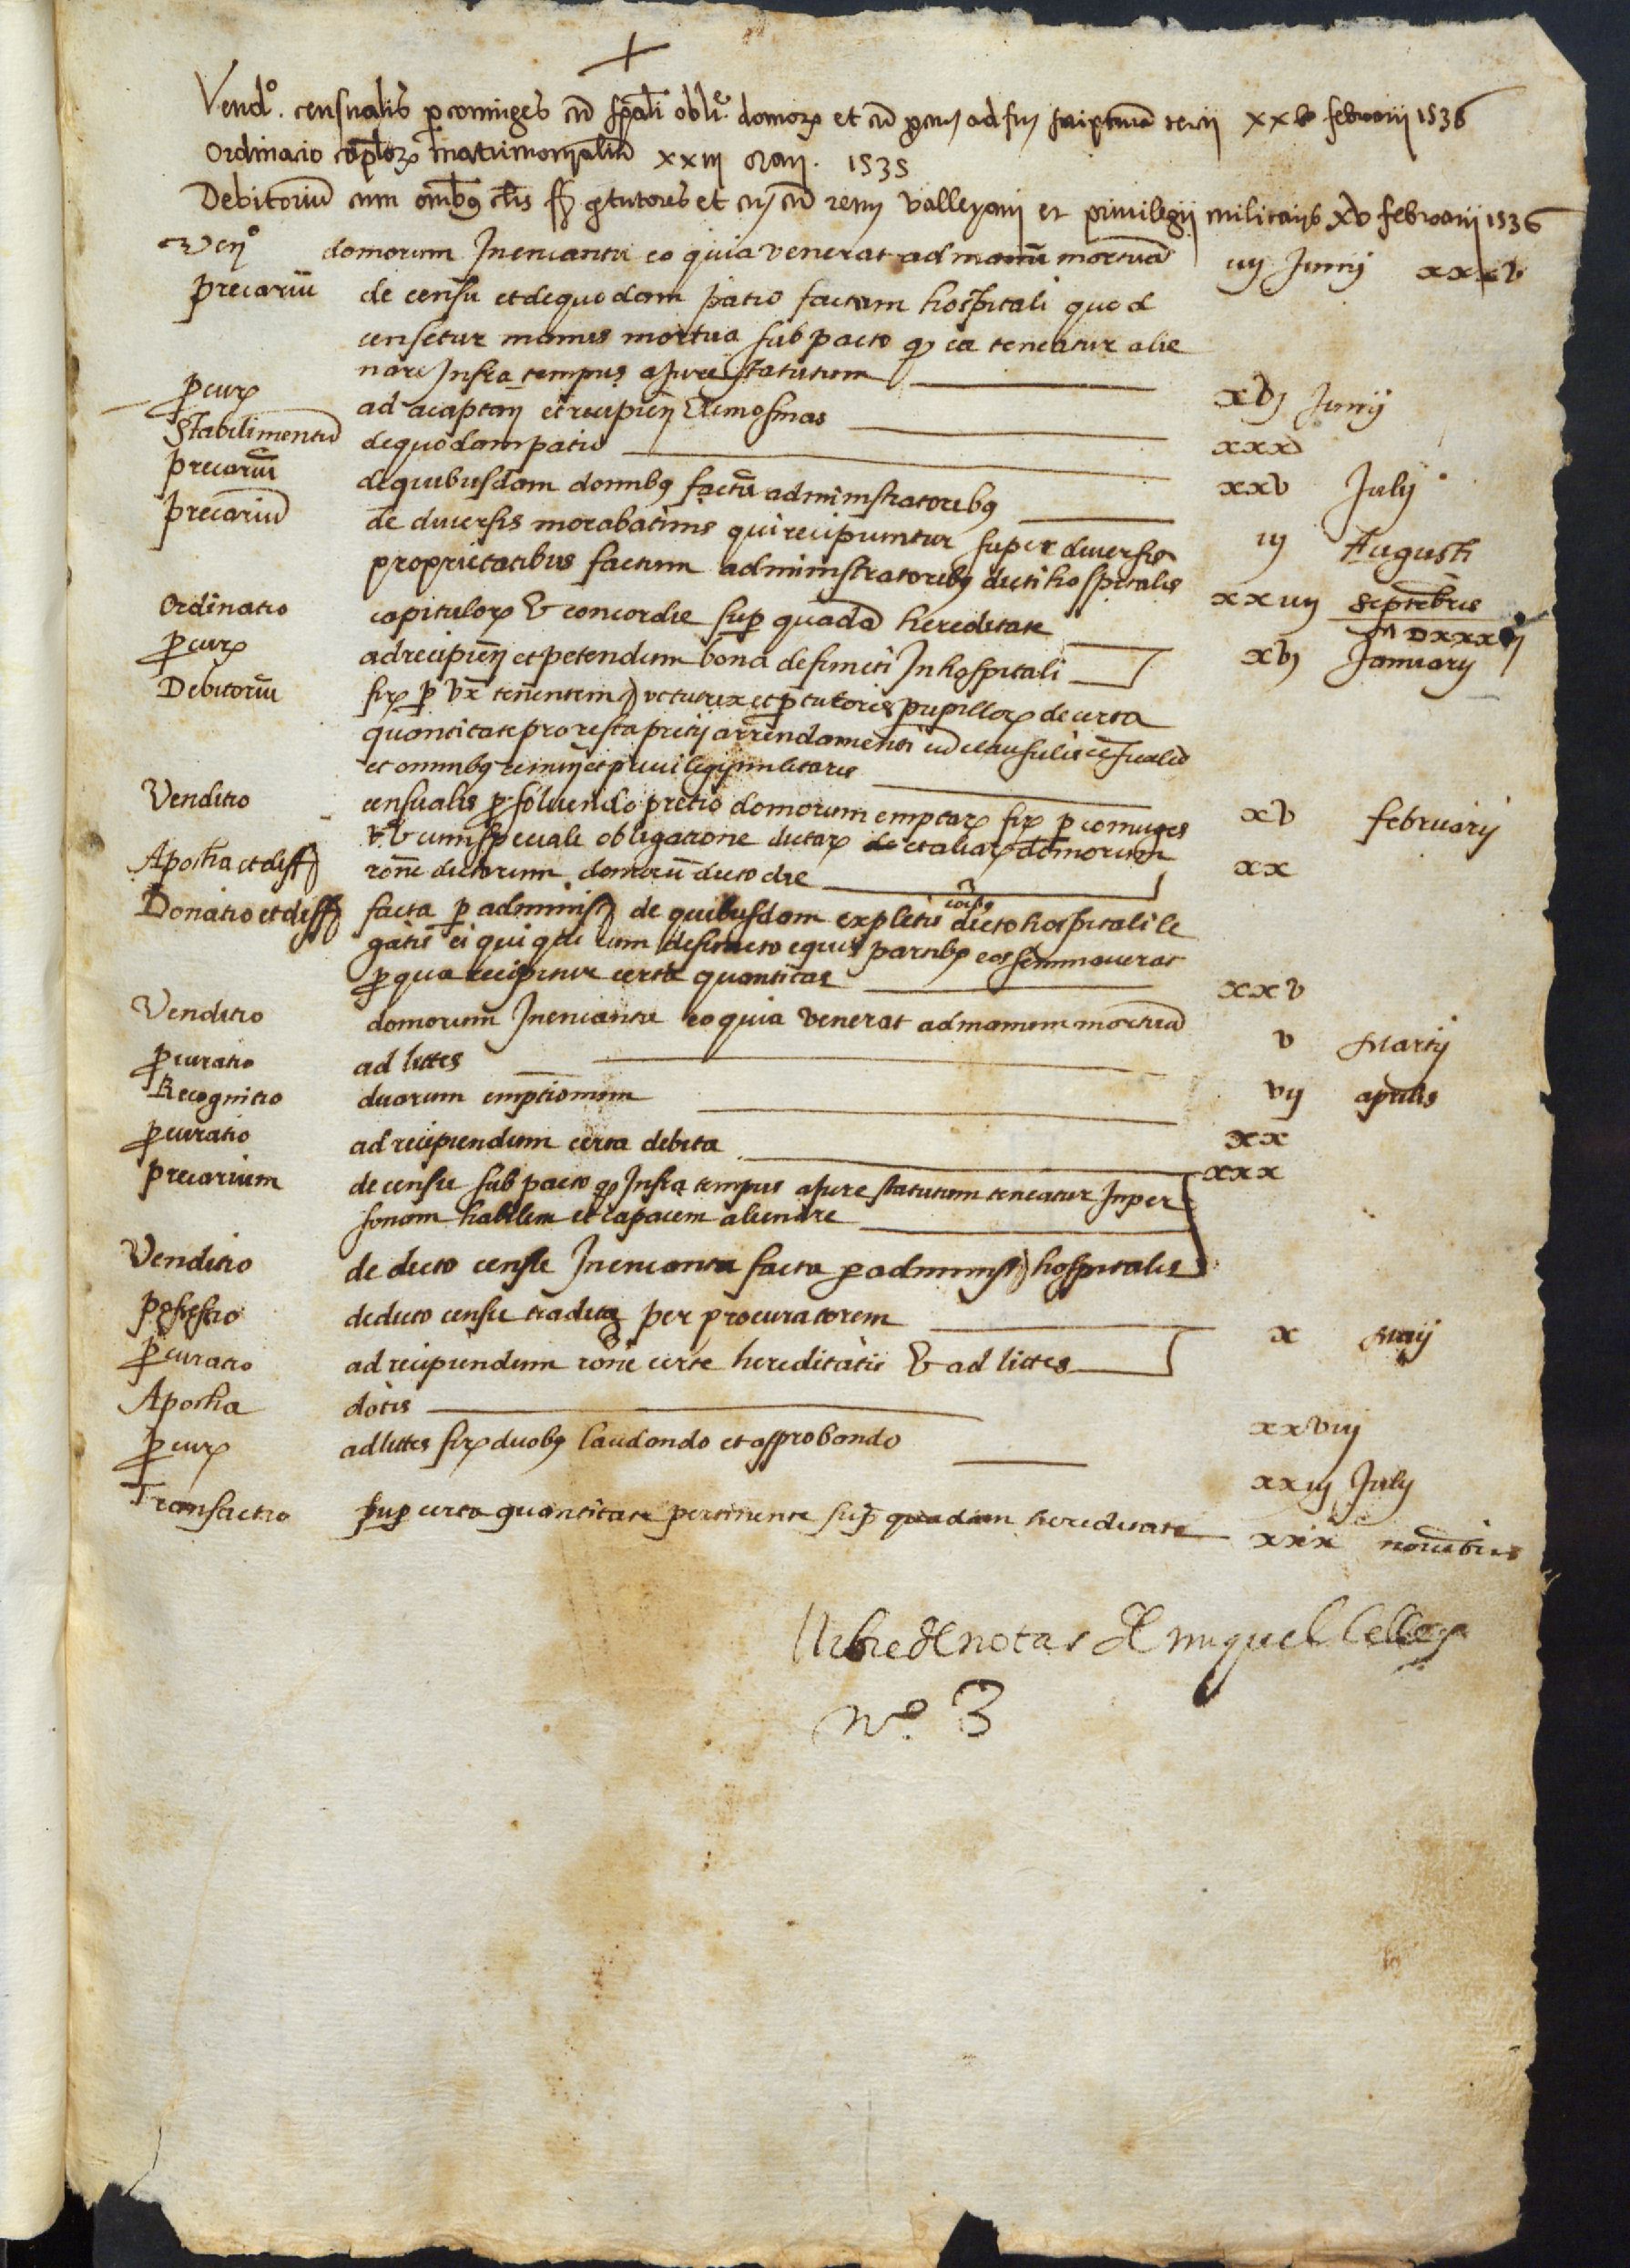 Vendo. censualis per coniuges cũ spāli oblie. domorꝝ et cũ xxv februarij 1536
Ordinacio caplorꝝ matrimonialiũ xxiij may. 1535
Debitoriũ cum omĩbꝰ clis tutores et valleyani et privilegij militaris xv februarij 1536
Venº domorum Inencantu eo quia venerat ad manũ mortuã iiij Junij xxxv
precariũ de censu et de quodam patio factum hospitali quod
censetur manus mortua sub pacto ꝙ ea teneatur alie
nare Infra tempus a jure statutum xvj Junij
ꝓcurꝝ ad acaptan et recipien Elemosinas
Stabilimentũ de quodam patio xxx
precariũ de quibusdam domibꝰ factũ administratoribꝰ xxv July
precariũ de diversis morabatinis qui recipiuntur super diversis iij Augusti
proprietatibus factum administratoribꝰ dicti hospitalis
Ordinatio capitulorꝝ & concordie suꝑ quadã hereditate xxiiij septẽbris
ꝓcurꝝ ad recipien et petendum bona defuncti In hospitali xvj January
Debitoriũ tenentem ut tutrix et ꝑ tutores pupillorꝝ de certa
quantitate pro resta pretij arrendamenti cũ clausulis
et omnibꝰ et privilegij militaris
Venditio censualis ꝓ solvendo pretio domorum emptarꝝ ꝑ coniuges xv februarij
& cum speciali obligatione dictarꝝ et aliarꝝ domorum
Apocha et diff rõne dictorum domorũ dicto die xx
Donatio et diff facta ꝑ administ de quibusdam expletis dicto hospitali le
gatis ei qui cum defuncto equis partibꝰ eos seminaverat
ꝓ qua recipitur certa quantitas xxv
Venditio domorum Inencantu eo quia venerat ad manum mortuã
ꝓcuratio ad littes v Martij
Recognitio duarum emptionum vij aprilis
ꝓcuratio ad recipiendum certa debita xx
precarium de censu sub pacto ꝙ Infra tempus a jure statutum teneatur In per xxx
sonam habilem et capacem alienare
Venditio de dicto censu Inencantu facta ꝑ administ hospitalis
possessio de dicto censu tradita per procuratorem x Maij
ꝓcuratio ad recipiendum rõne certe hereditatis & ad littes
Apocha dotis xxviij
ꝓcurꝝ ad littes duobꝰ laudando et approbando xxiij July
Transactio suꝑ certa quantitate pertinente suꝑ quadam hereditate xxix novẽbris
llibre de notas de miquel
nº. 3